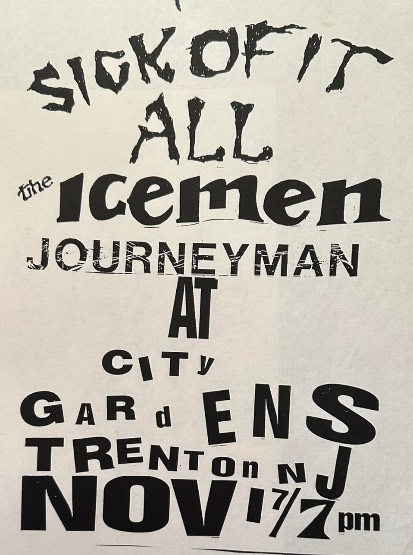 SICK OF IT
ALL
the Icemen
JOURNEYMAN
AT
CITy
GARdENS
TRENTOn NJ
NOV 17/7pm